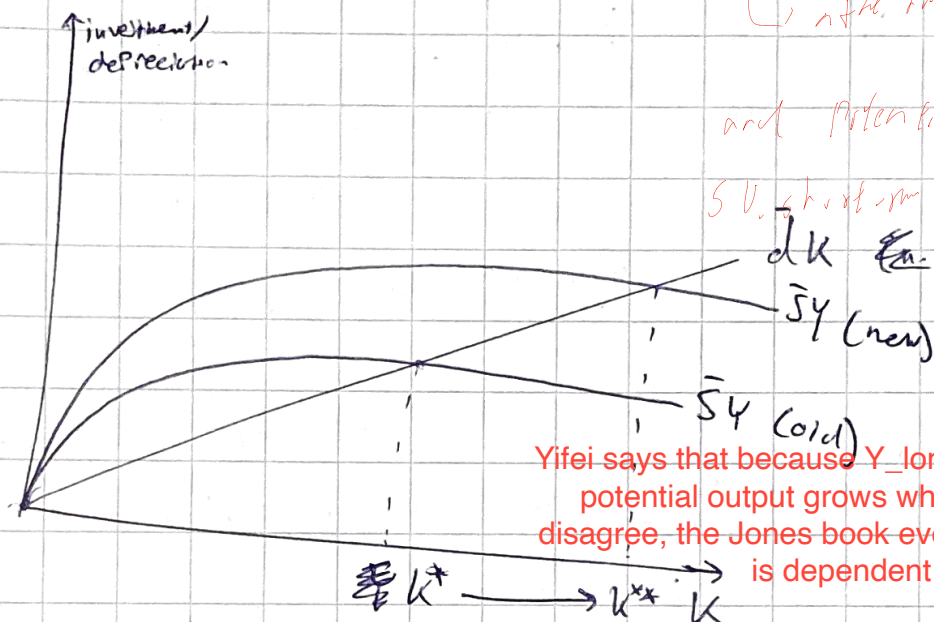 investment/
depreciation
and
d̄K
s̄Y (new)
s̄Y (old)
Yifei says that because Y_lo
potential output grows wh
disagree, the Jones book eve
is dependent
K* → K** K